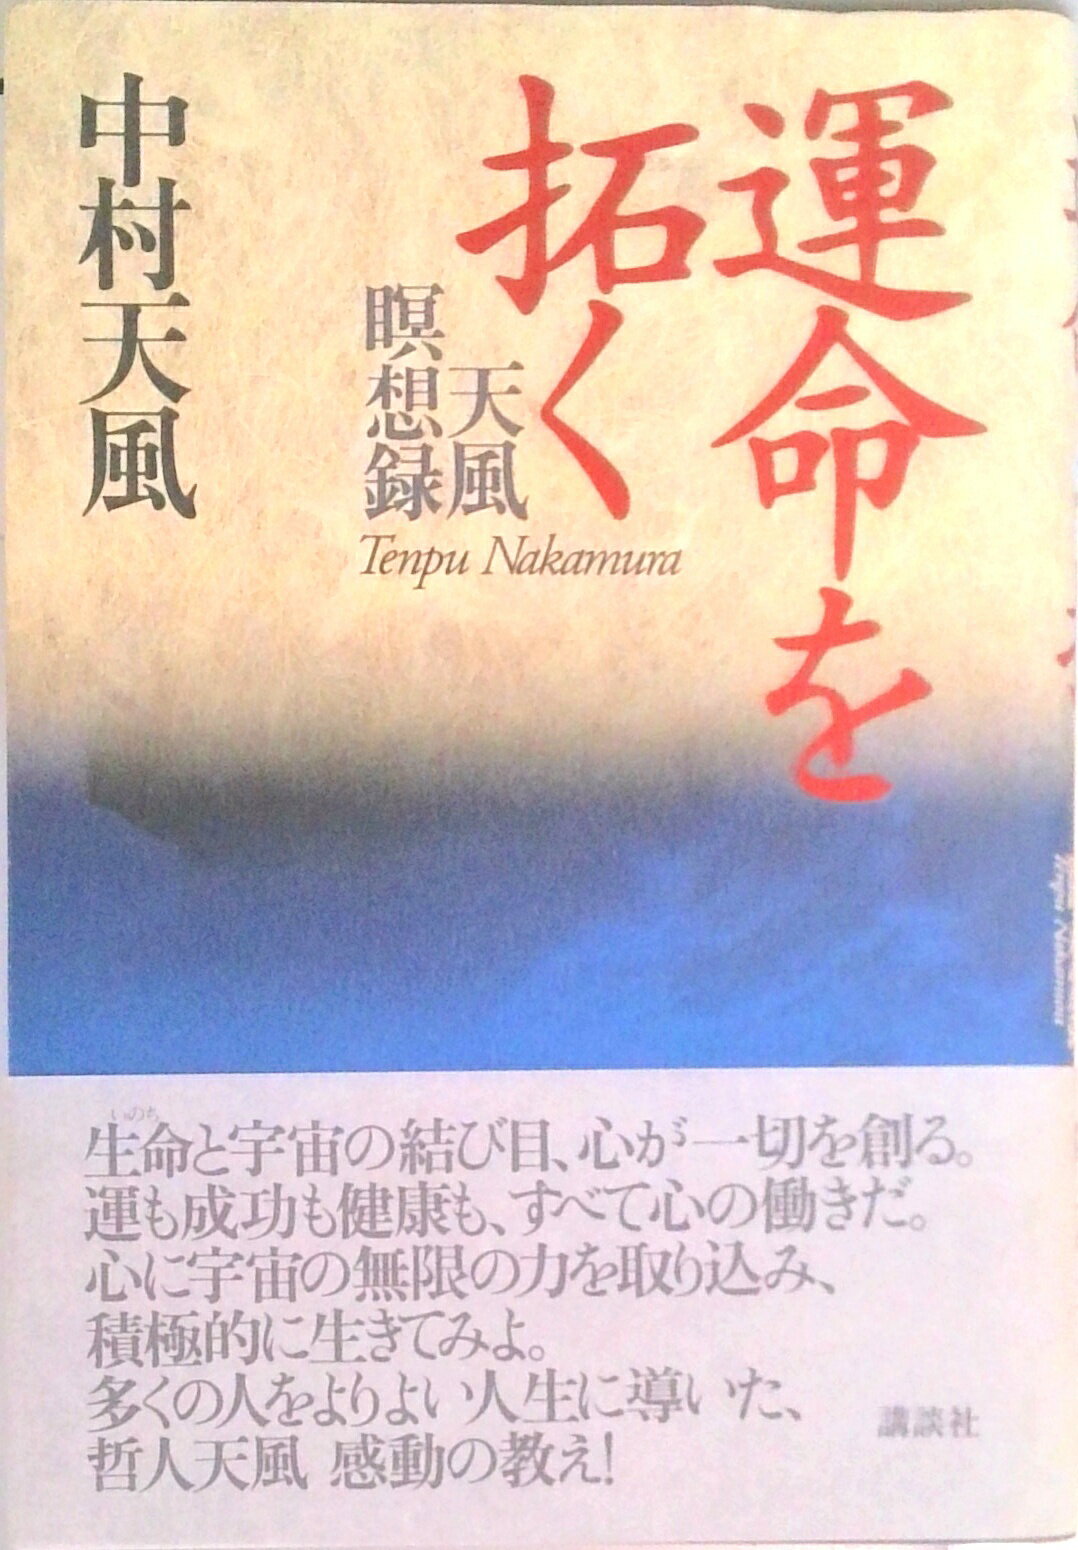 運命を
拓く
天風
瞑想録
Tenpu Nakamura
中村天風
いのち
生命と宇宙の結び目、心が一切を創る。
運も成功も健康も、すべて心の働きだ。
心に宇宙の無限の力を取り込み、
積極的に生きてみよ。
多くの人をよりよい人生に導いた、
哲人天風 感動の教え!
講談社
Tenpu Nakamura